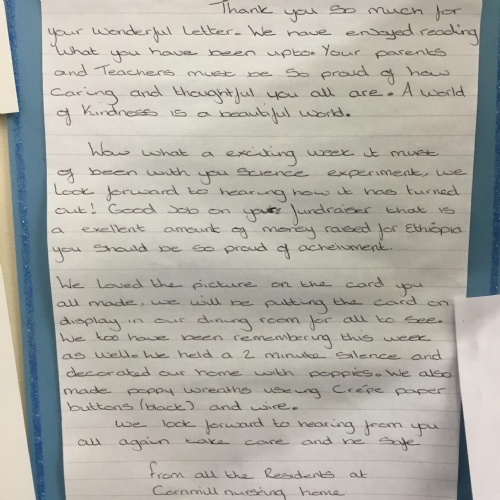 Thank you so much for
your wonderful Letter. We have enjoyed reading
what you have been upto. Your parents
and Teachers must be so proud of how
caring and thoughtful you all are. A world
of Kindness is a beautiful world.
Wow what a exciting week it must
of been with you science experiment, we
look forward to hearing how it has turned
out! Good Job on your fundraiser that is
a exellent amount of money raised for Ethiopia
you should be so proud of acheivment.
We Loved the picture on the card you
all made, we will be putting the card on
display in our dining room for all to see.
We too have been remembering this week
as well. We held a 2 minute silence and
decorated our home with poppies. We also
made poppy wreaths useing Crêpe paper
buttons (black) and wire.
We look forward to hearing from you
all again take care and be safe
from all the Residents at
Cornmill nursing home